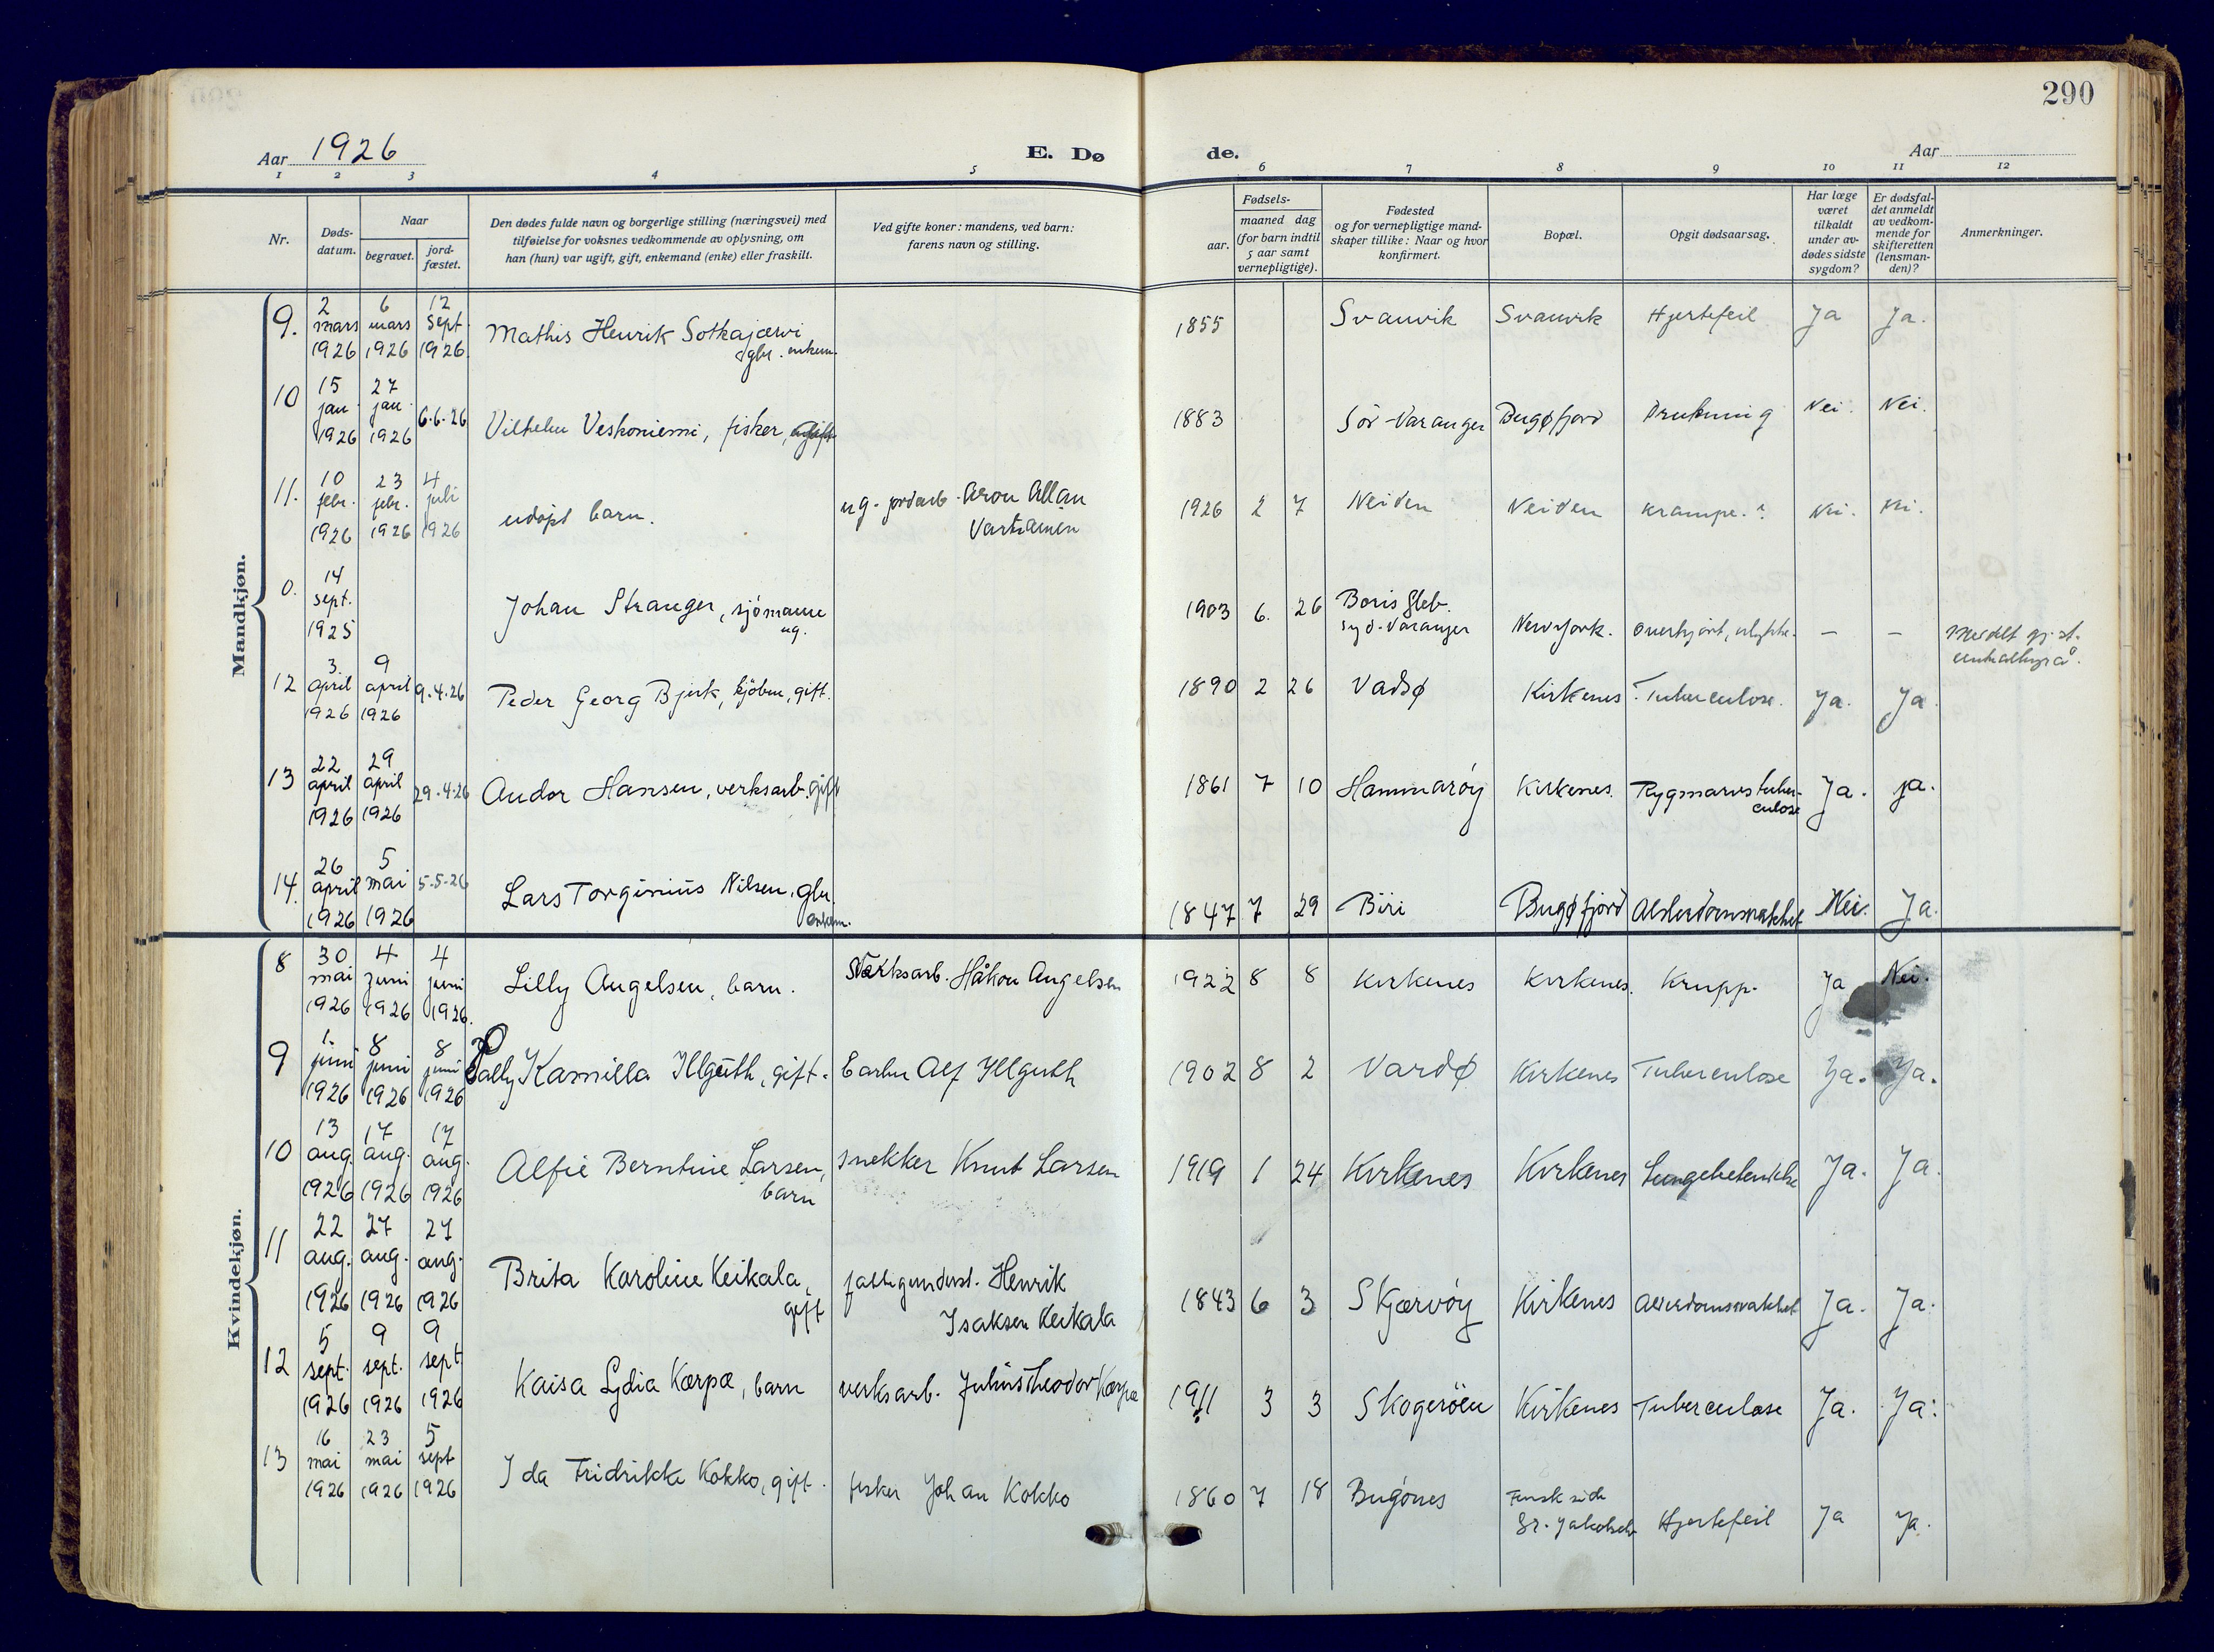 290
Aar 1926
E. Dø
de.
Aar
1 2 3 4 5 6 7 8 9 10 11 12
Nr.
Døds-
datum.
Naar
begravet.
jord-
fæstet.
Den dødes fulde navn og borgerlige stilling (næringsvei) med
tilføielse for voksnes vedkommende av oplysning, om
han (hun) var ugift, gift, enkemand (enke) eller fraskilt.
Ved gifte koner: mandens, ved barn:
farens navn og stilling.
Fødsels-
aar.
maaned dag
(for barn indtil
5 aar samt
vernepligtige).
Fødested
og for vernepligtige mand-
skaper tillike: Naar og hvor
konfirmert.
Bopæl.
Opgit dødsaarsag.
Har læge
været
tilkaldt
under av-
dødes sidste
sygdom?
Er dødsfal-
det anmeldt
av vedkom-
mende for
skifteretten
(lensman-
den)?
Anmerkninger.
Mandkjøn.
9. 2 mars 1926 6 mars 1926 12 sept. 1926 Mathis Henrik Sotkajærvi 1855 Svanvik Svanvik Hjertefeil Ja Ja.
gbr. enkem.
10 15 jan. 1926 27 jan. 1926 6.6.26 Vilhelm Veskoniemi, fisker, 1883 Sör-Varanger Bugøfjord Drukning Nei. Nei.
11. 10 febr. 1926 23 febr. 1926 4 juli 1926 udøpt barn. ug. jordarb. Aron Allan 1926 2 7 Neiden Neiden Krampe.? Nei. Nei.
Vartiainen
0. 14 sept. 1925 Johan Stranger, sjömann 1903 6. 26 Boris Gleb. New York. overkjört, ulykke. — —
ug. Syd-Varanger Meddelt gj. st.
centralbyrå.
12 3. april 1926 9 april 1926 9.4.26 Peder Georg Bjirk, kjöbm., gift. 1890 2 26 Vadsø Kirkenes Tuberculose. Ja. Ja
13 22 april 1926 29 april 1926 29.4.26 Andor Hansen, verksarb. gift 1861 7 10 Hammaröy Kirkenes. Rygmarvstuber- Ja. Ja.
culose
14. 26 april 1926 5 mai 1926 5.5.26 Lars Torginius Nilsen, gbr. 1847 7 29 Biri Bugøfjord Alderdomssvakhet Nei. Ja.
enkem.
Kvindekjøn.
8 30 mai 1926 4 juni 1926 4 juni 1926. Lilly Angelsen, barn. Verksarb. Håkon Angelsen 1922 8 8 Kirkenes Kirkenes. Krupp. Ja Nei.
9 1. juni 1926 8 juni 1926 8 juni 1926 Pally Kamilla Illguth, gift. Alf Illguth 1902 8 2 Vardø Kirkenes Tuberculose Ja. Ja.
10 13 aug. 1926 17 aug. 1926 17 aug. 1926 Alfie Berntine Larsen, snekker Knut Larsen 1919 1 24 Kirkenes Kirkenes Lungebetændelse Ja. Ja.
barn
11 22 aug. 1926 27 aug. 1926 27 aug. 1926 Brita Karoline Keikala, fattigunderst. Henrik 1843 6 3 Skjærvöy Kirkenes Alderdomssvakhet Ja. Ja.
gift Isaksen Keikala
12 5 sept. 1926 9 sept. 1926 9 sept. 1926 Kaisa Lydia Kærpæ, barn verksarb. Julius Theodor Kærpæ 1911 3 3 Skogeröen Kirkenes Tuberculose Ja. Ja.
13 16 mai 1926 23 mai 1926 5 sept 1926 Ida Fridrikke Kokko, gift. fisker Johan Kokko 1860 7 18 Bugönes Finsk side Hjertefeil Ja Ja.
Gr. Jakobselv